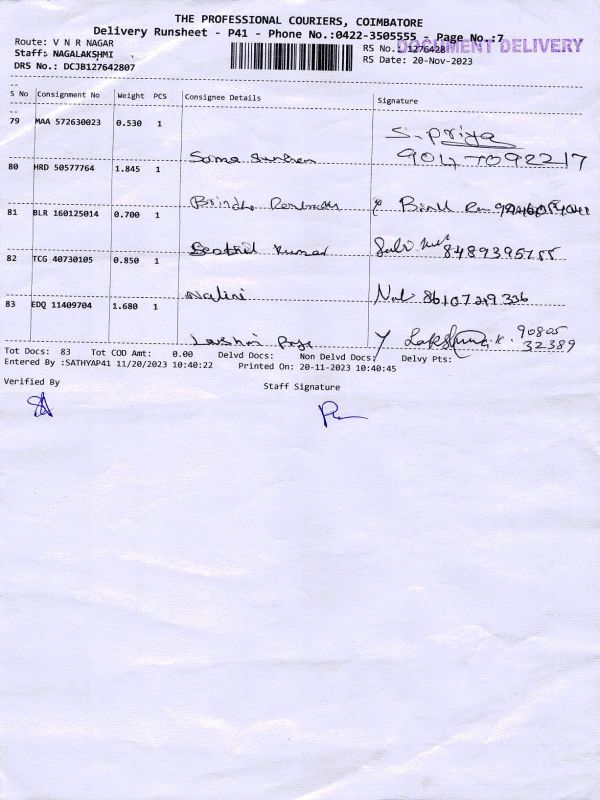 THE PROFESSIONAL COURIERS, COIMBATORE
Delivery Runsheet - P41 - Phone No.:0422-3505555 - Page No.:7
DOCUMENT DELIVERY
Route: V N R NAGAR
RS No. 1276428
Staff: NAGALAKSHMI
RS Date: 20-Nov-2023
DRS No.: DCJB127642807
S No Consignment No Weight PCS Consignee Details Signature
79 MAA 572630023 0.530 1 S. Priya
9047092217
80 HRD 50577764 1.845 1
81 BLR 160125014 0.700 1
Senthil Kumar 8489395755
82 TCG 40730105 0.850 1
Nalini 86107249336
83 EDQ 11409704 1.680 1
Lakshmi 90805
32389
Tot Docs: 83 Tot COD Amt: 0.00 Delvd Docs: Non Delvd Docs: Delvy Pts:
Entered By :SATHYAP41 11/20/2023 10:40:22 Printed On: 20-11-2023 10:40:45
Verified By Staff Signature